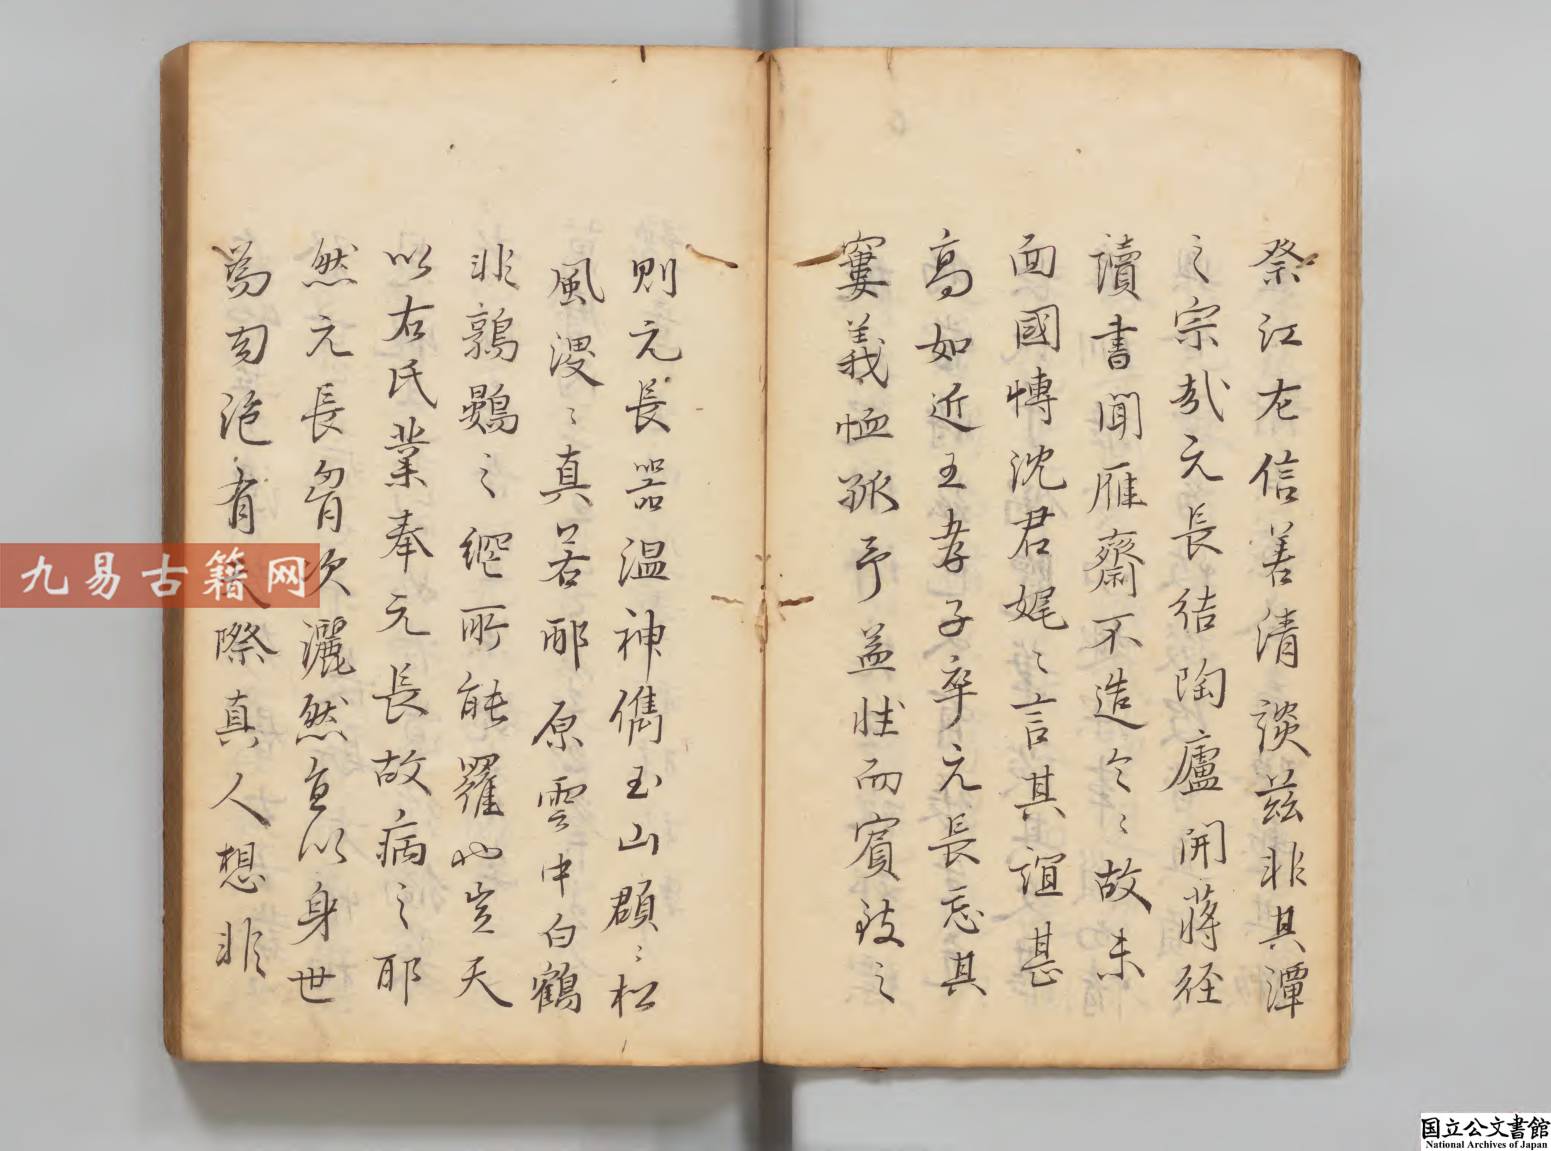 祭江左信善清談茲非其潭
之宗哉元長結陶廬開蔣径
讀書聞雁齋不造令〻故未
面國博沈君娓〻言其誼甚
高如近王孝子卒元長忘其
窶義恤孤予益性而賓致之
則元長器温神儁玉山頵〻松
風謖〻真若邴原雲中白鶴
非鶉鷃之網所能羅也豈天
以右氏業奉元長故病之耶
然元長胷次灑然直以身世
為勿沁有際真人想非
九易古籍网
国立公文書館
National Archives of Japan